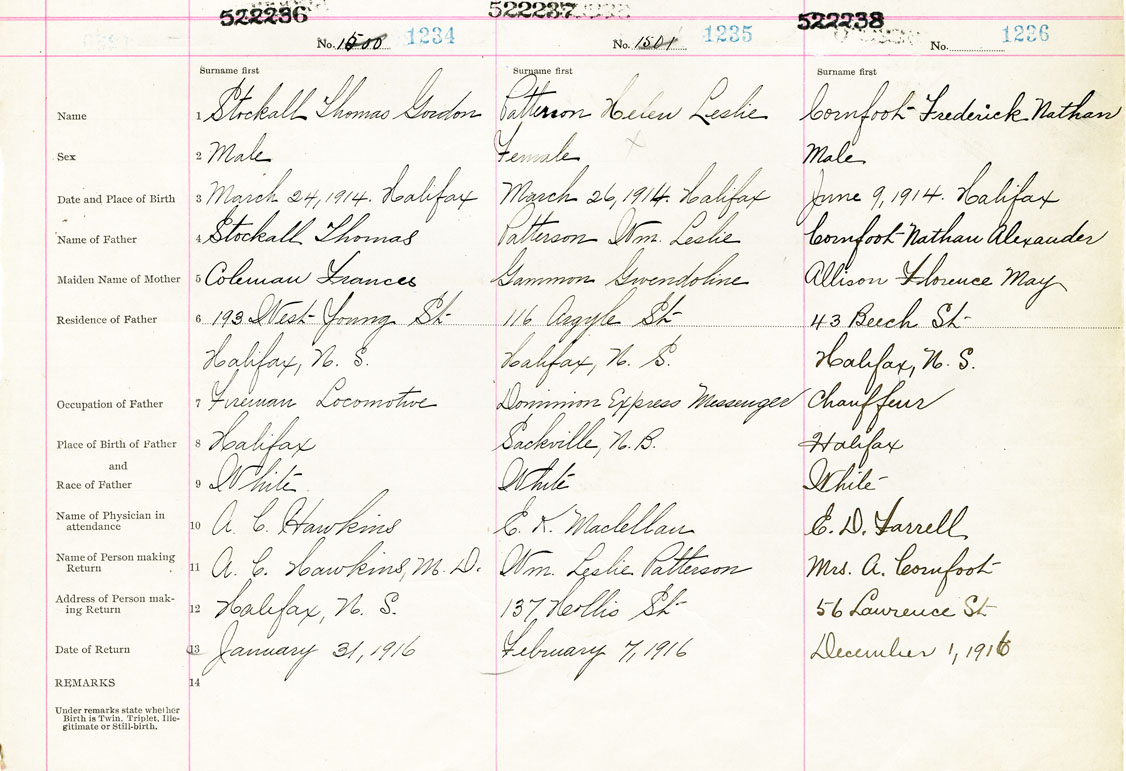 522236 522237 522238
No. 1500 1234 No. 1501 1235 No. 1236
Surname first Surname first Surname first
Name 1 Stockall Thomas Gordon Patterson Helen Leslie Cornfoot Frederick Nathan
Sex 2 Male Female x Male
Date and Place of Birth 3 March 24, 1914. Halifax March 26, 1914. Halifax June 9, 1914. Halifax
Name of Father 4 Stockall Thomas Patterson Wm. Leslie Cornfoot Nathan Alexander
Maiden Name of Mother 5 Coleman Frances Gammon Gwendoline Allison Florence May
Residence of Father 6 193 West Young St 116 Argyle St 43 Beech St
Halifax, N. S. Halifax, N. S. Halifax, N. S.
Occupation of Father 7 Fireman Locomotive Dominion Express Messenger Chauffeur
Place of Birth of Father 8 Halifax Sackville, N.B. Halifax
and
Race of Father 9 White White White
Name of Physician in
attendance 10 A. C. Hawkins E. K. Maclellan E. D. Farrell
Name of Person making
Return 11 A. C. Hawkins, M. D. Wm. Leslie Patterson Mrs. A. Cornfoot
Address of Person mak-
ing Return 12 Halifax, N. S. 137 Hollis St 56 Lawrence St
Date of Return 13 January 31, 1916 February 7, 1916 December 1, 1916
REMARKS 14
Under remarks state whether
Birth is Twin, Triplet, Ille-
gitimate or Still-birth.